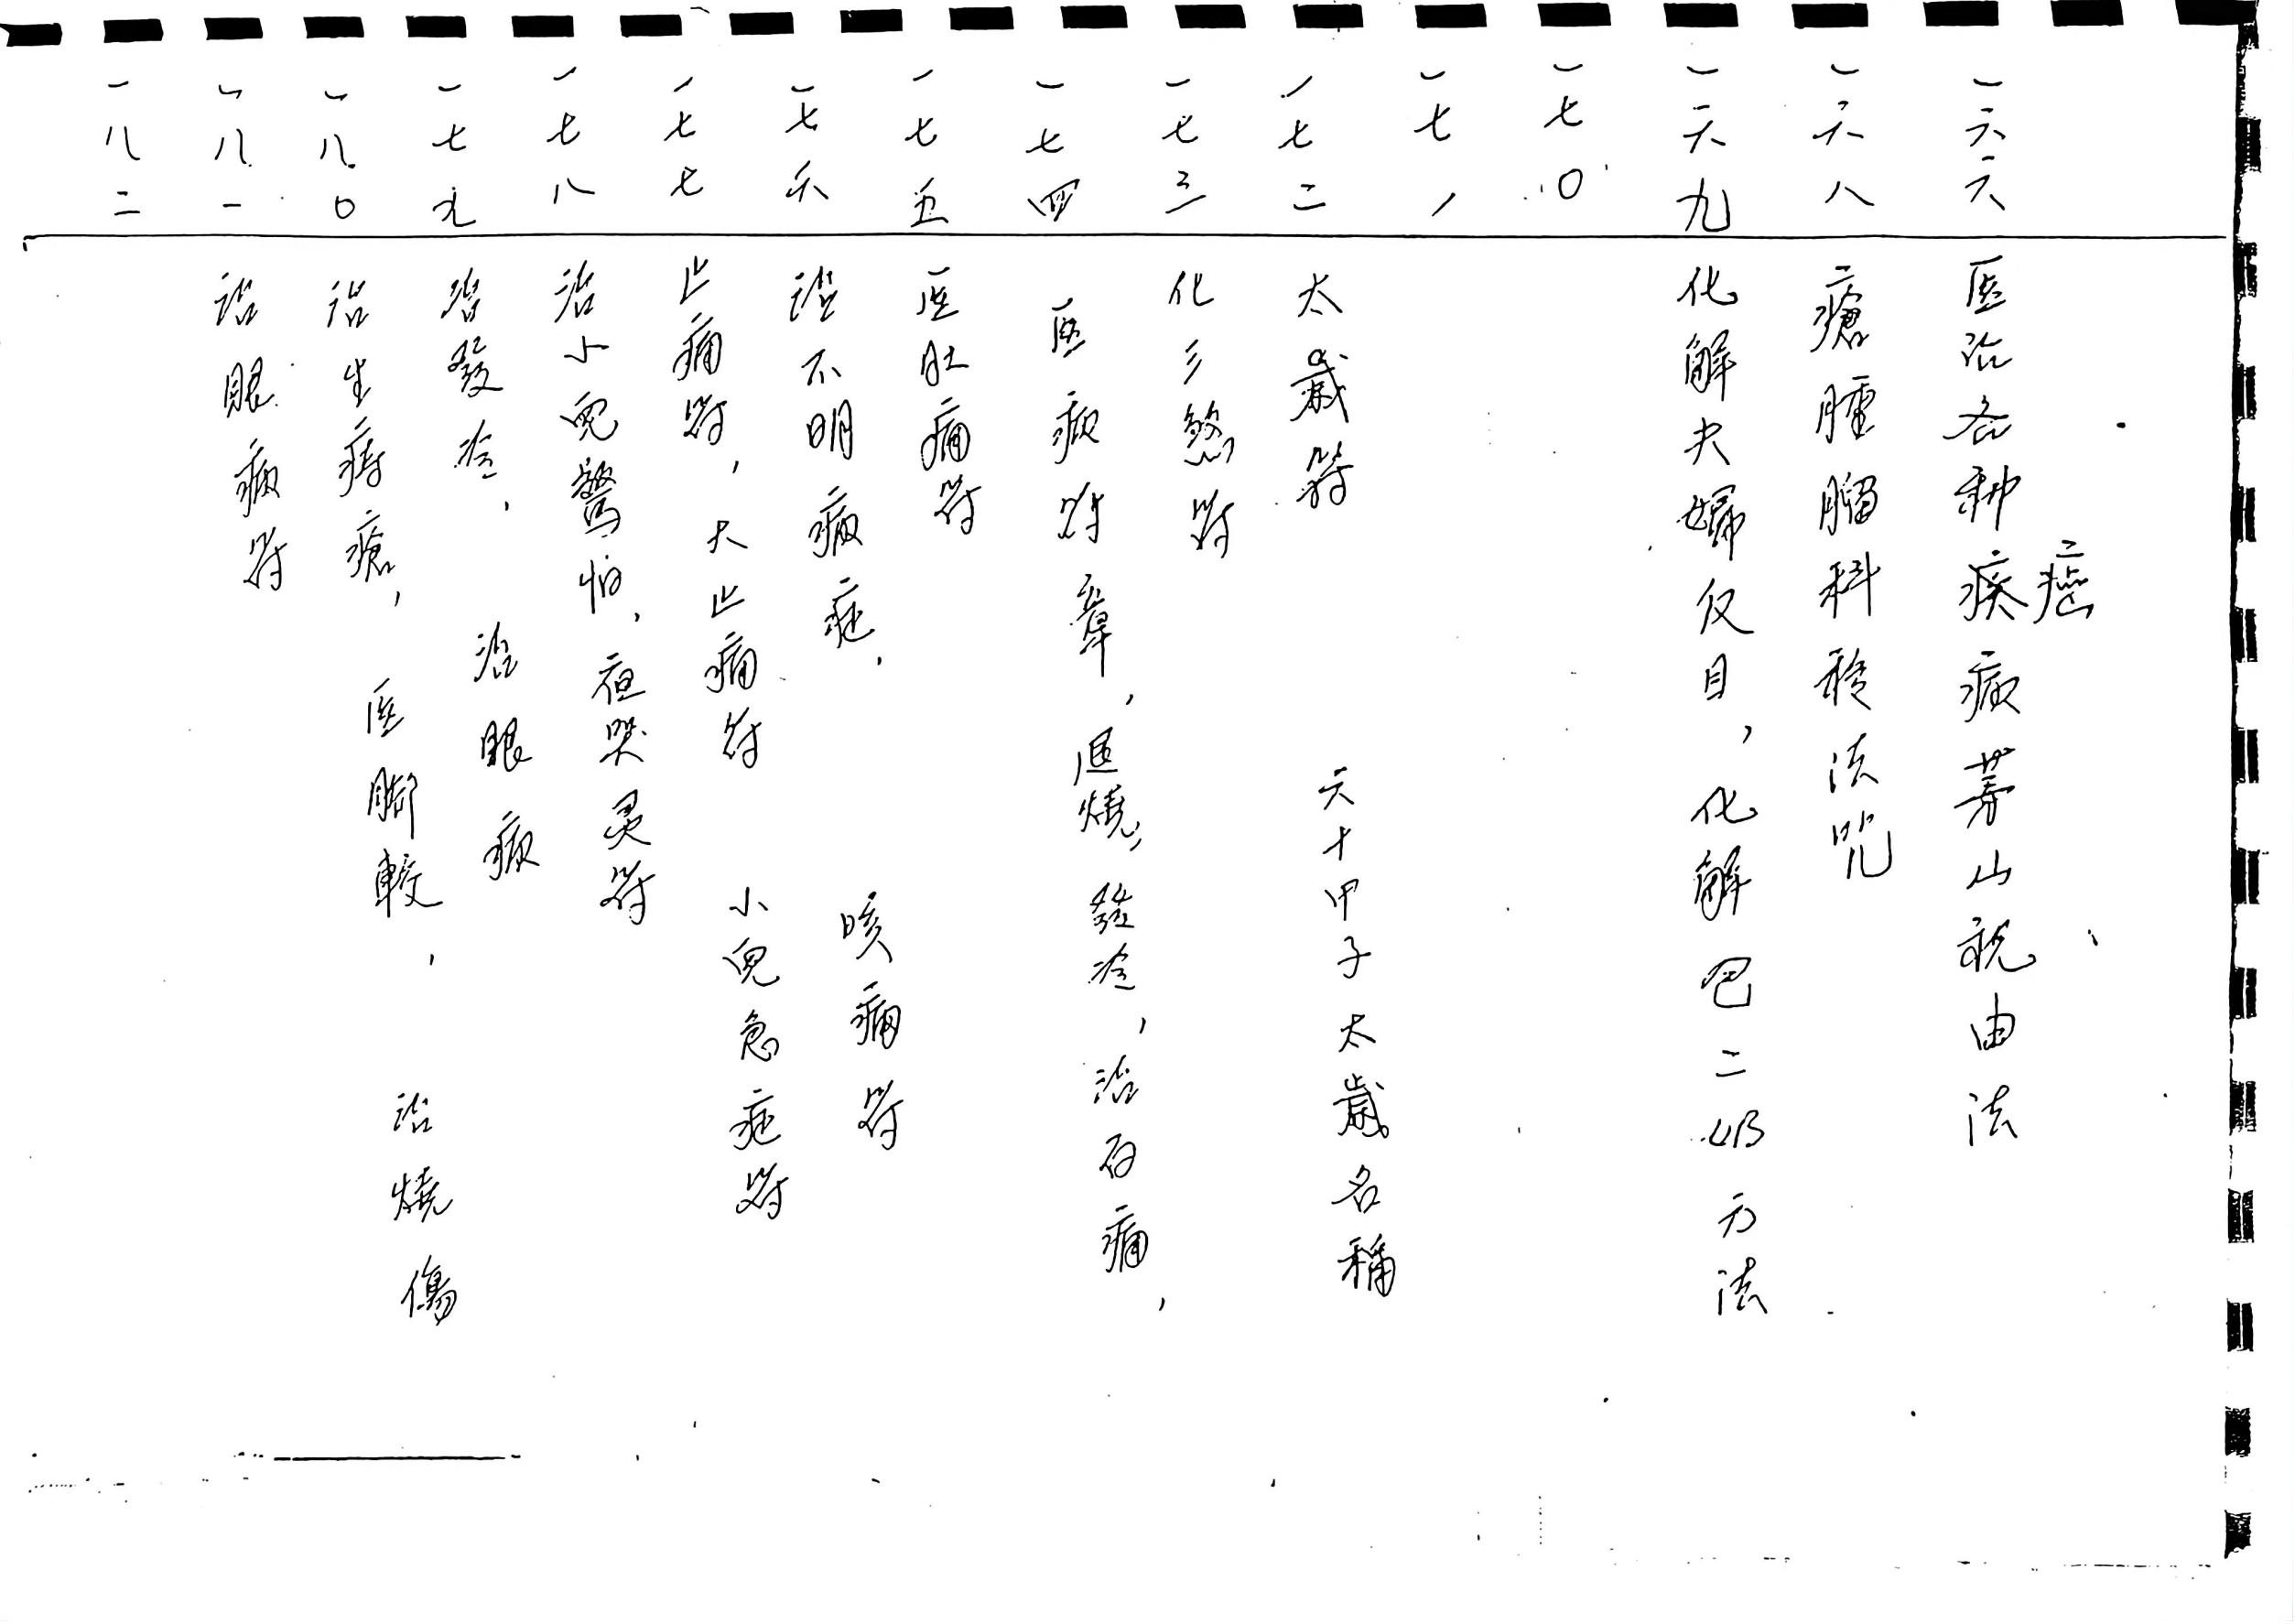 一六六 医治各种疾病茅山祝由法
癌
一六八 瘡腫腦科移法咒
一六九 化解夫婦反目，化解包二奶方法
一七〇
一七一
一七二 太歲符 六十甲子太歲名稱
一七三 化彡煞符
一七四 医病符章，退燒，發冷，治百痛，
一七五 医肚痛符
一七六 證不明病症， 咳痛符
一七七 止痛符，大止痛符 小兒急症符
一七八 治小兒驚怕，夜哭灵符
一七九 治發冷， 治眼病
一八〇 治生痔瘡， 医脚較， 治燒傷
一八一 治眼病符
一八二